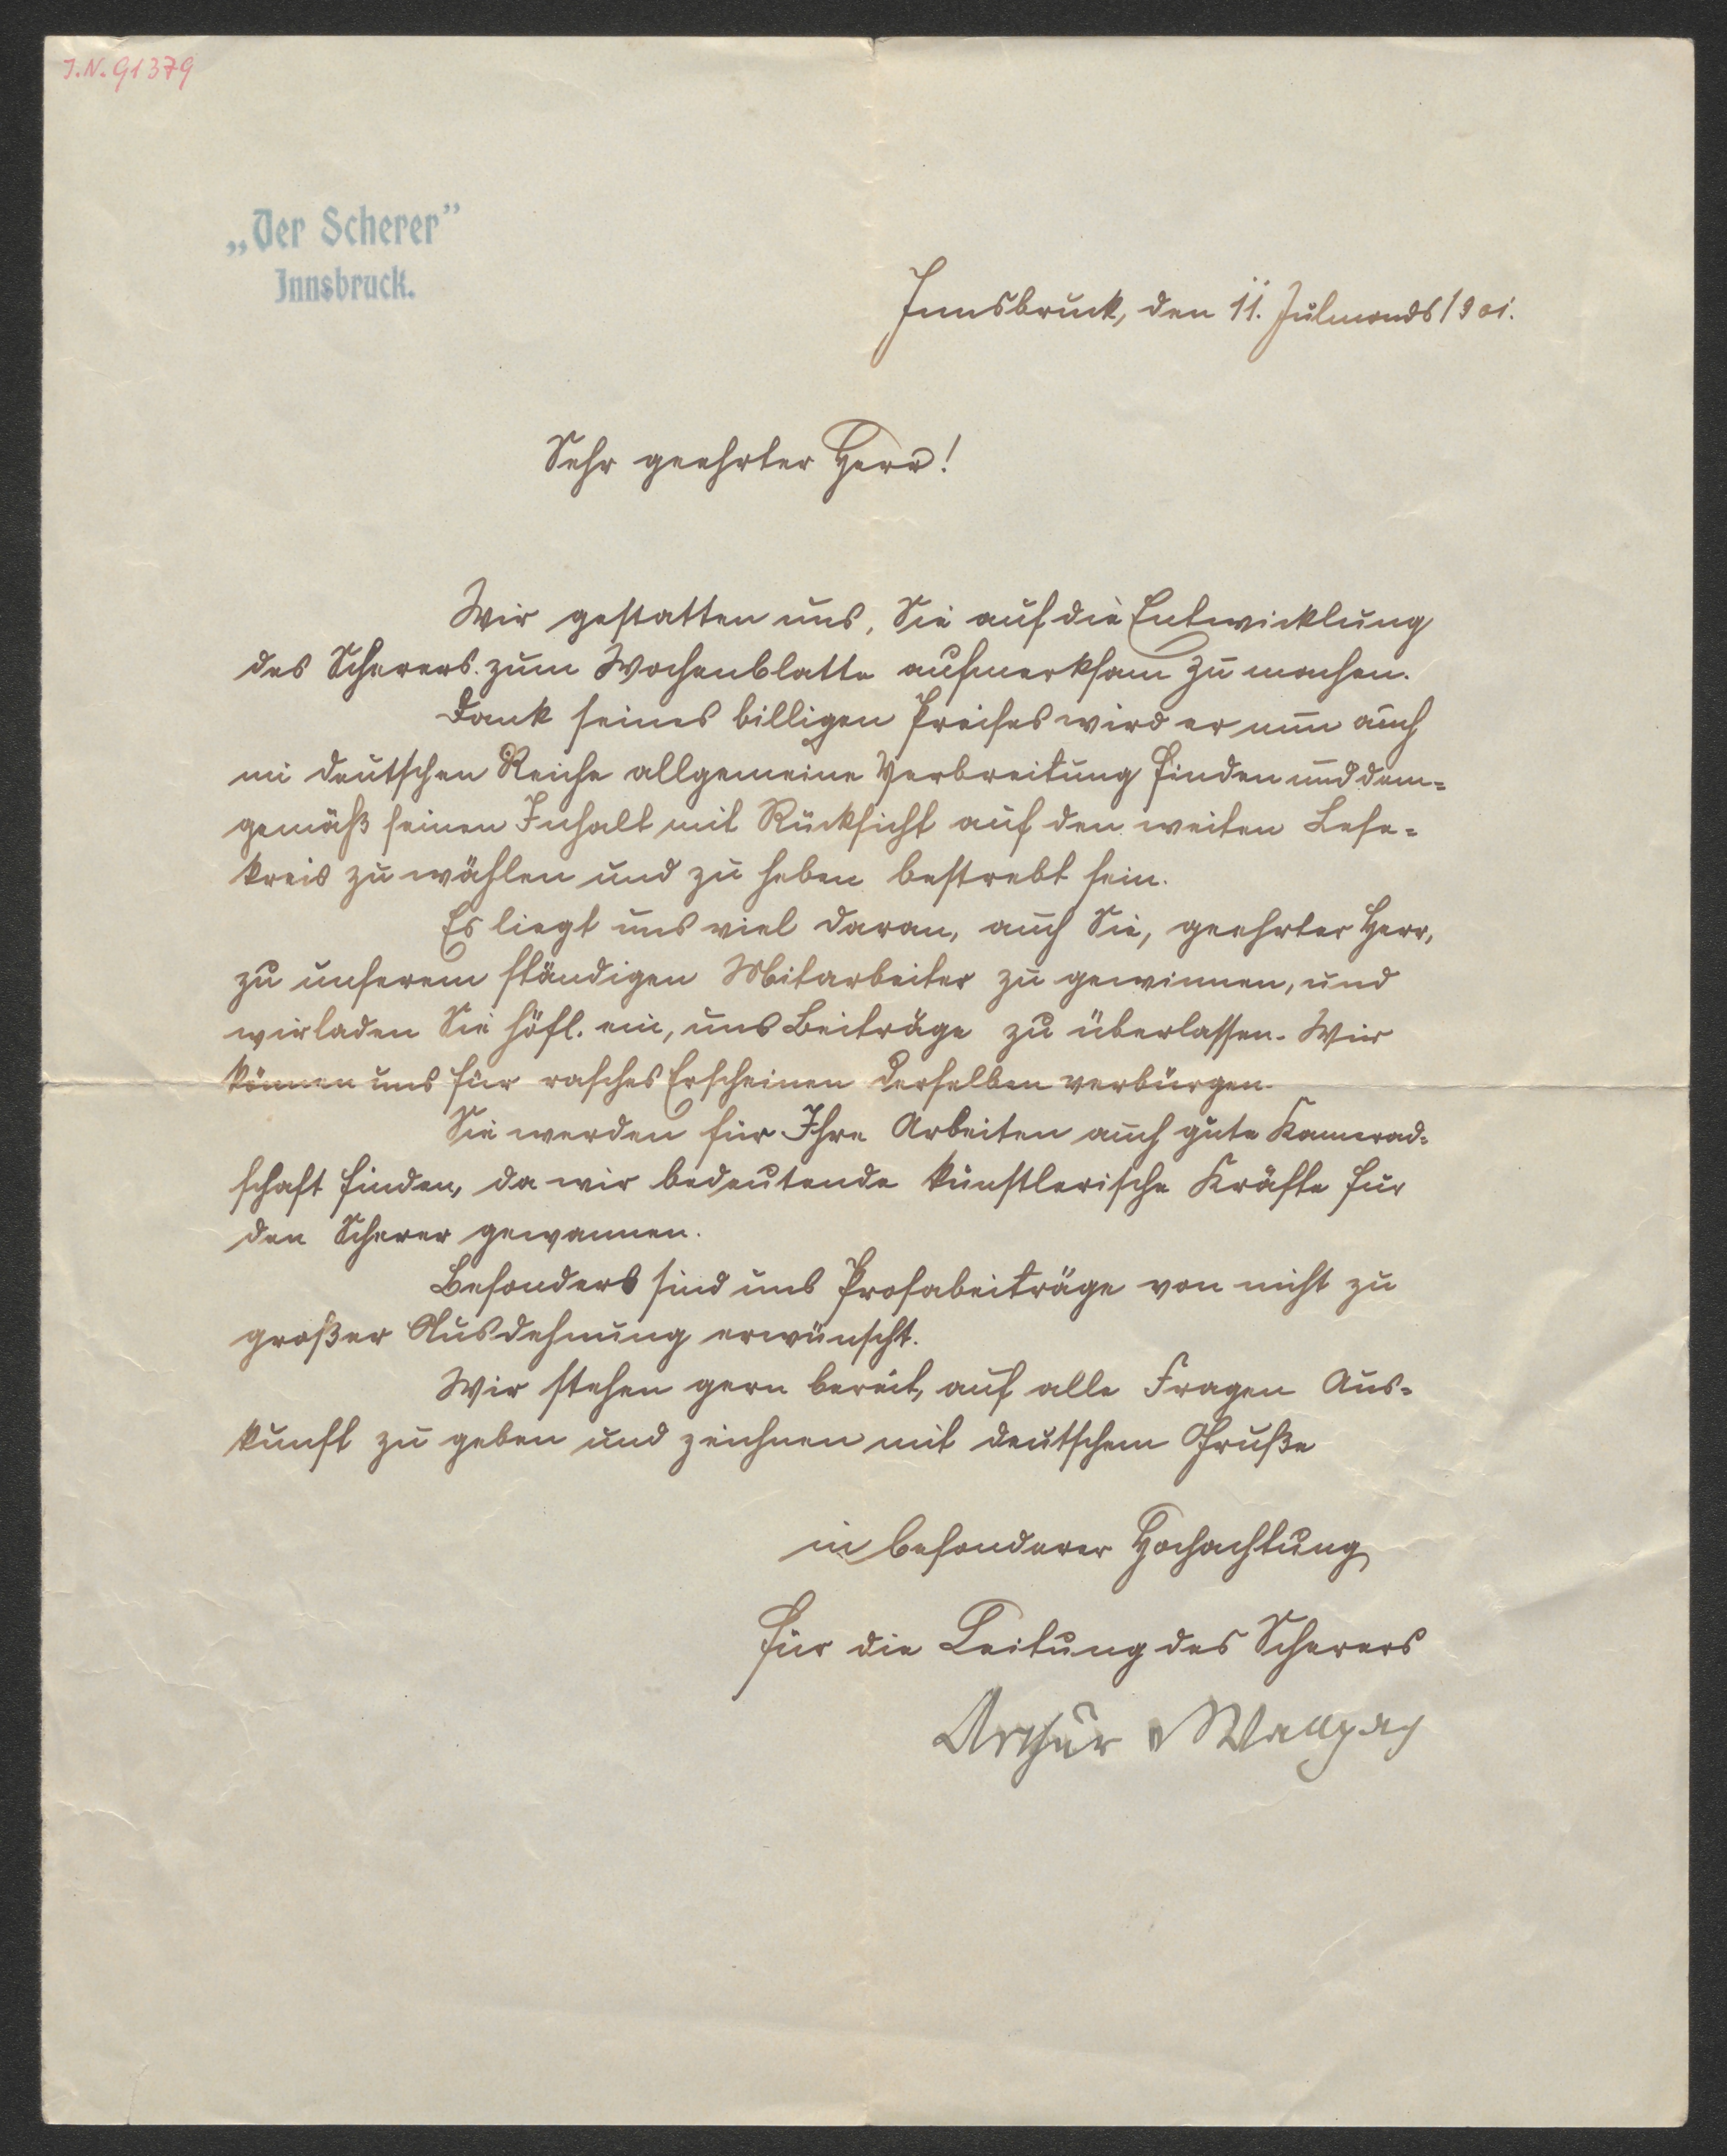 J.N. 91379
„Der Scherer”
Innsbruck.
Innsbruck, den 11. Julmonds 1901.
Sehr geehrter Herr!
Wir gestatten uns, Sie auf die Entwicklung
des Scherers zum Wochenblatte aufmerksam zu machen.
Dank seines billigen Preises wird er nun auch
im deutschen Reiche allgemeine Verbreitung finden und dem=
gemäß seinen Inhalt mit Rücksicht auf den weiten Lese=
kreis zu wählen und zu heben bestrebt sein.
Es liegt uns viel daran, auch Sie, geehrter Herr,
zu unserem ständigen Mitarbeiter zu gewinnen, und
wir laden Sie höfl. ein, uns Beiträge zu überlassen. Wir
können uns für rasches Erscheinen derselben verbürgen.
Sie werden für Ihre Arbeiten auch gute Kamerad=
schaft finden, da wir bedeutende künstlerische Kräfte für
den Scherer gewannen.
Besonders sind uns Prosabeiträge von nicht zu
großer Ausdehnung erwünscht.
Wir stehen gern bereit, auf alle Fragen Aus=
kunft zu geben und zeichnen mit deutschem Gruße
in besonderer Hochachtung
für die Leitung des Scherers
Arthur v Wallpach